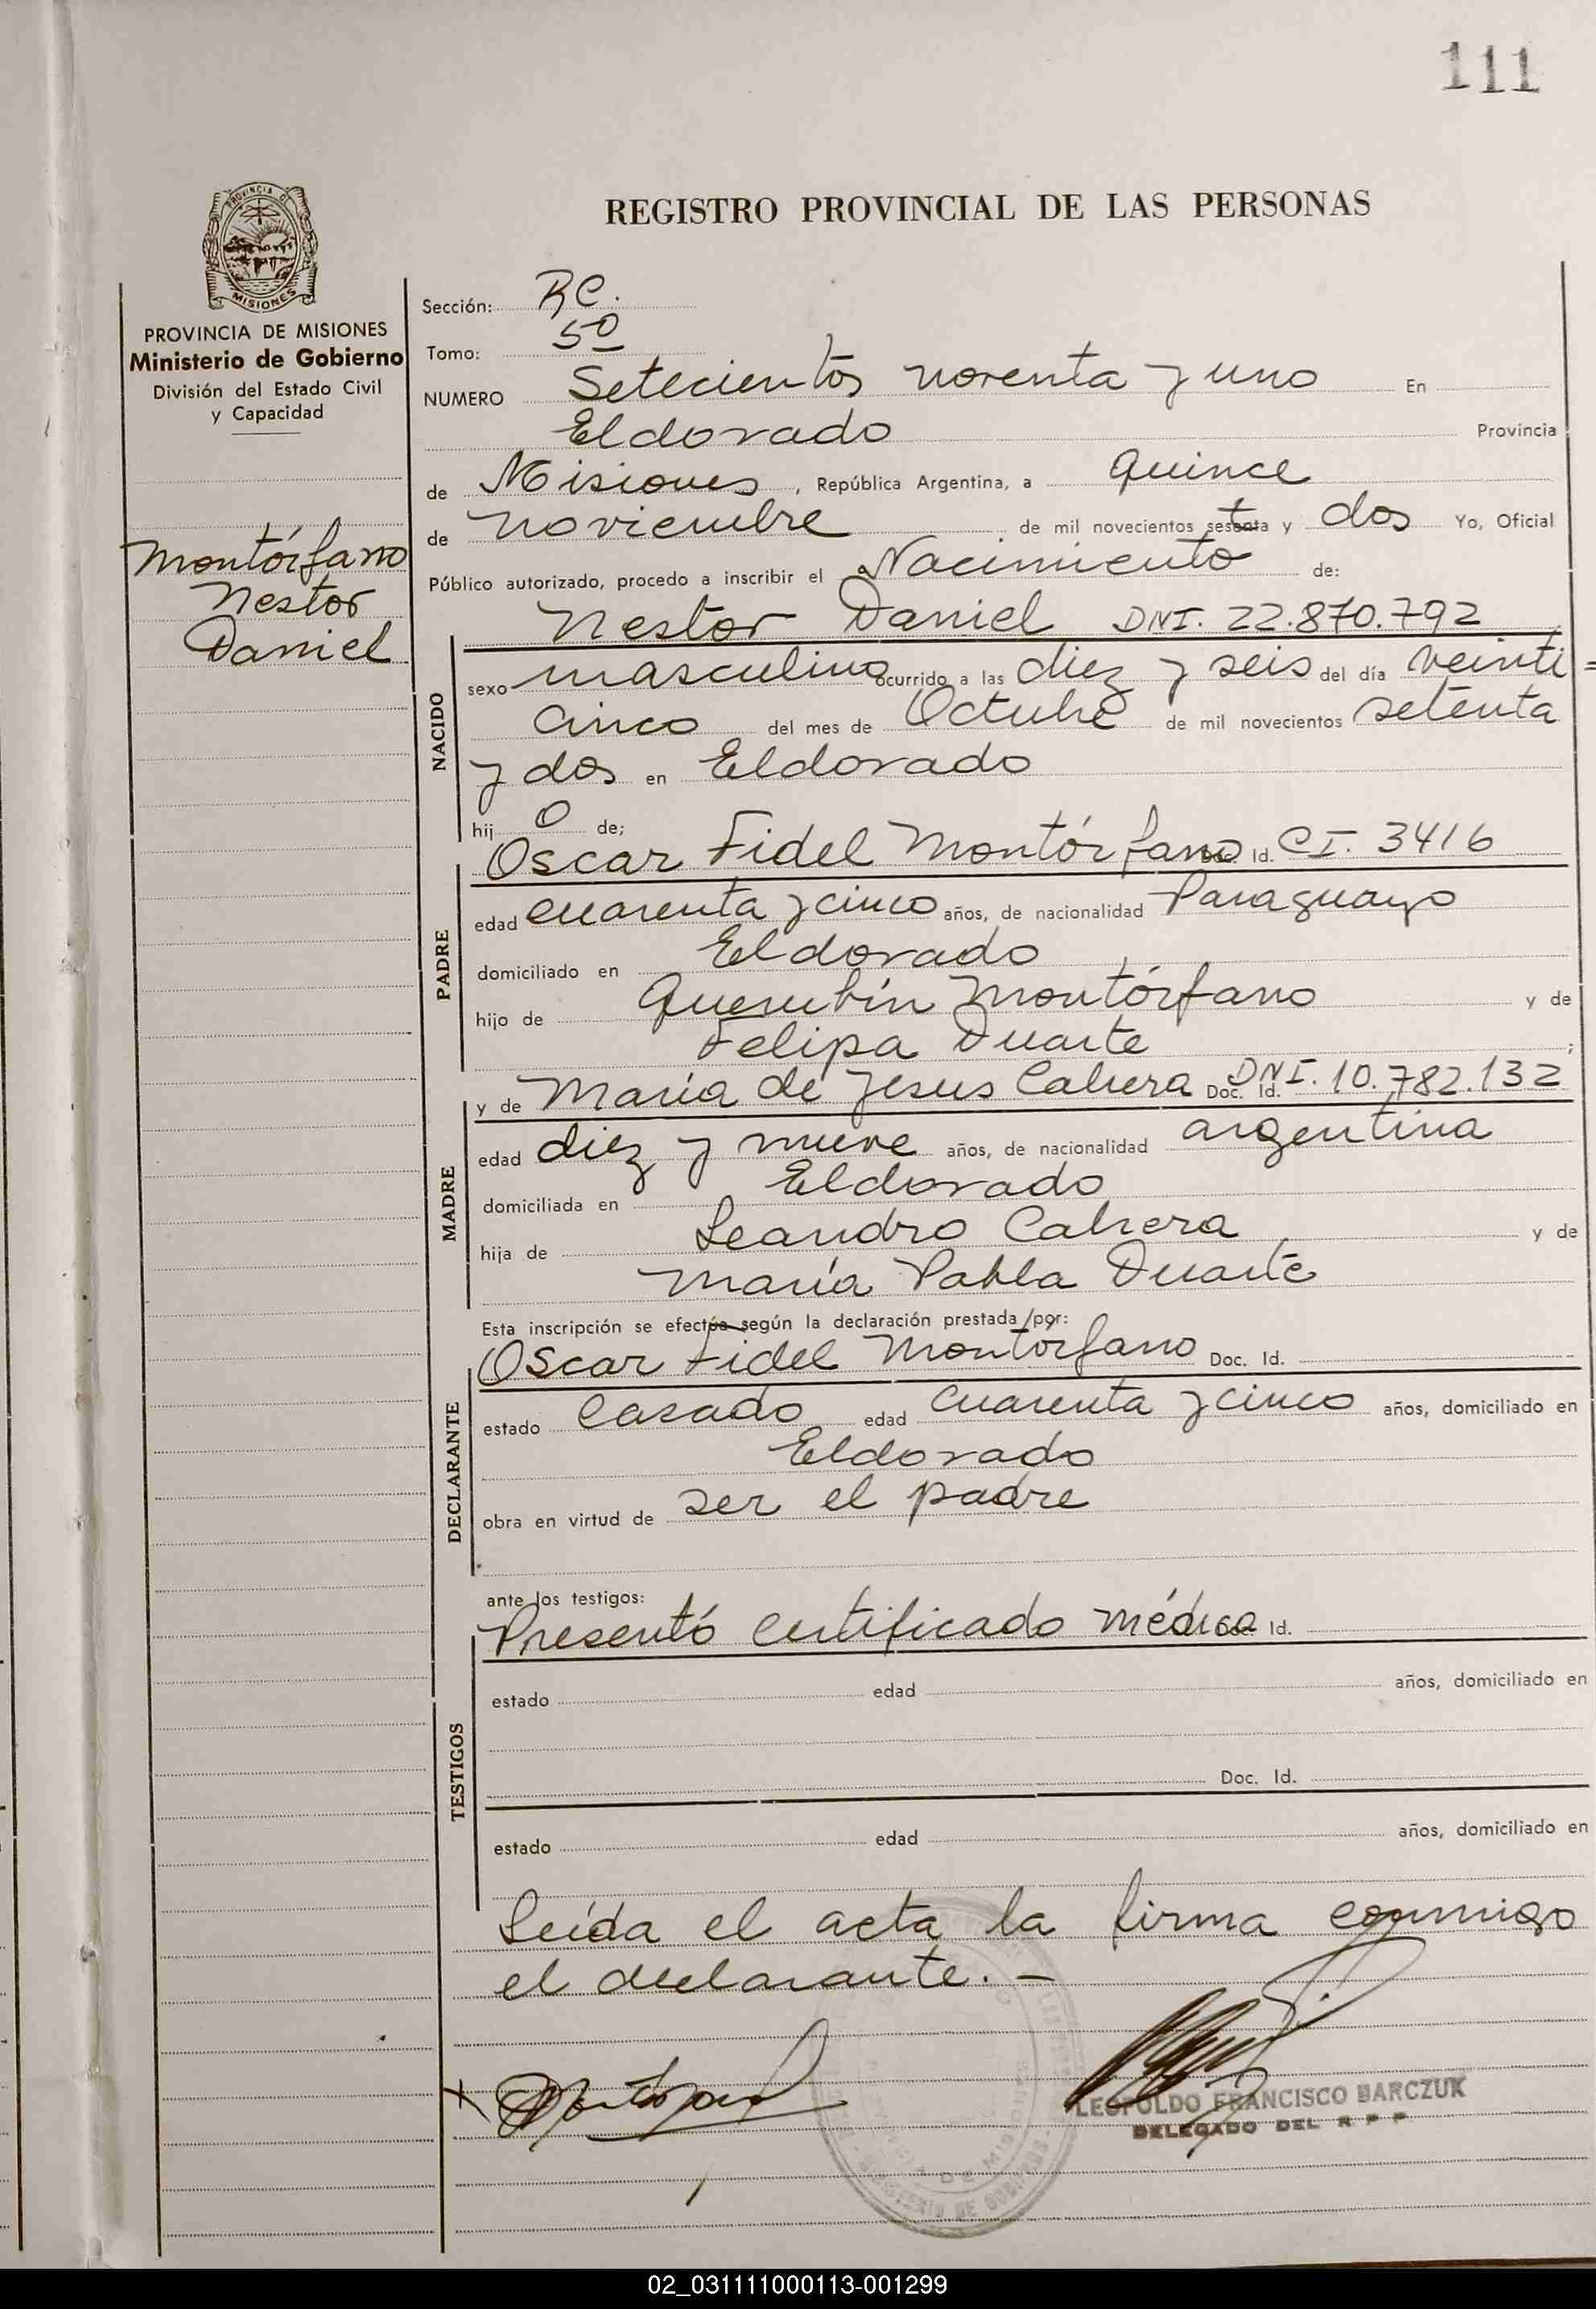 111
PROVINCIA DE
MISIONES
PROVINCIA DE MISIONES
Ministerio de Gobierno
División del Estado Civil
y Capacidad
Montórfano
Nestor
Daniel
REGISTRO PROVINCIAL DE LAS PERSONAS
Sección: RC.
Tomo: 5º
NUMERO Setecientos noventa y uno En
Eldorado Provincia
de Misiones, República Argentina, a quince
de noviembre de mil novecientos setenta y dos Yo, Oficial
Público autorizado, procedo a inscribir el Nacimiento de:
Nestor Daniel DNI. 22.870.792
NACIDO
sexo masculino ocurrido a las diez y seis del día veinti=
cinco del mes de Octubre de mil novecientos setenta
y dos en Eldorado
hij o de;
Oscar Fidel Montórfano Doc. Id. CI. 3416
PADRE
edad cuarenta y cinco años, de nacionalidad Paraguayo
domiciliado en Eldorado
hijo de Querubín Montórfano y de
Felipa Duarte ;
y de María de Jesus Cabrera Doc. Id. DNI. 10.782.132
MADRE
edad diez y nueve años, de nacionalidad argentina
domiciliada en Eldorado
hija de Leandro Cabrera y de
María Pabla Duarte
Esta inscripción se efectúa según la declaración prestada por:
Oscar Fidel Montórfano Doc. Id.
DECLARANTE
estado Casado edad cuarenta y cinco años, domiciliado en
Eldorado
obra en virtud de ser el padre
ante los testigos:
Presentó certificado médico Doc. Id.
TESTIGOS
estado edad años, domiciliado en
Doc. Id.
estado edad años, domiciliado en
Leída el acta la firma conmigo
el declarante. –
LEOPOLDO FRANCISCO BARCZUK
DELEGADO DEL R P P
MINISTERIO DE GOBIERNO
PROVINCIA DE MISIONES
02_031111000113-001299